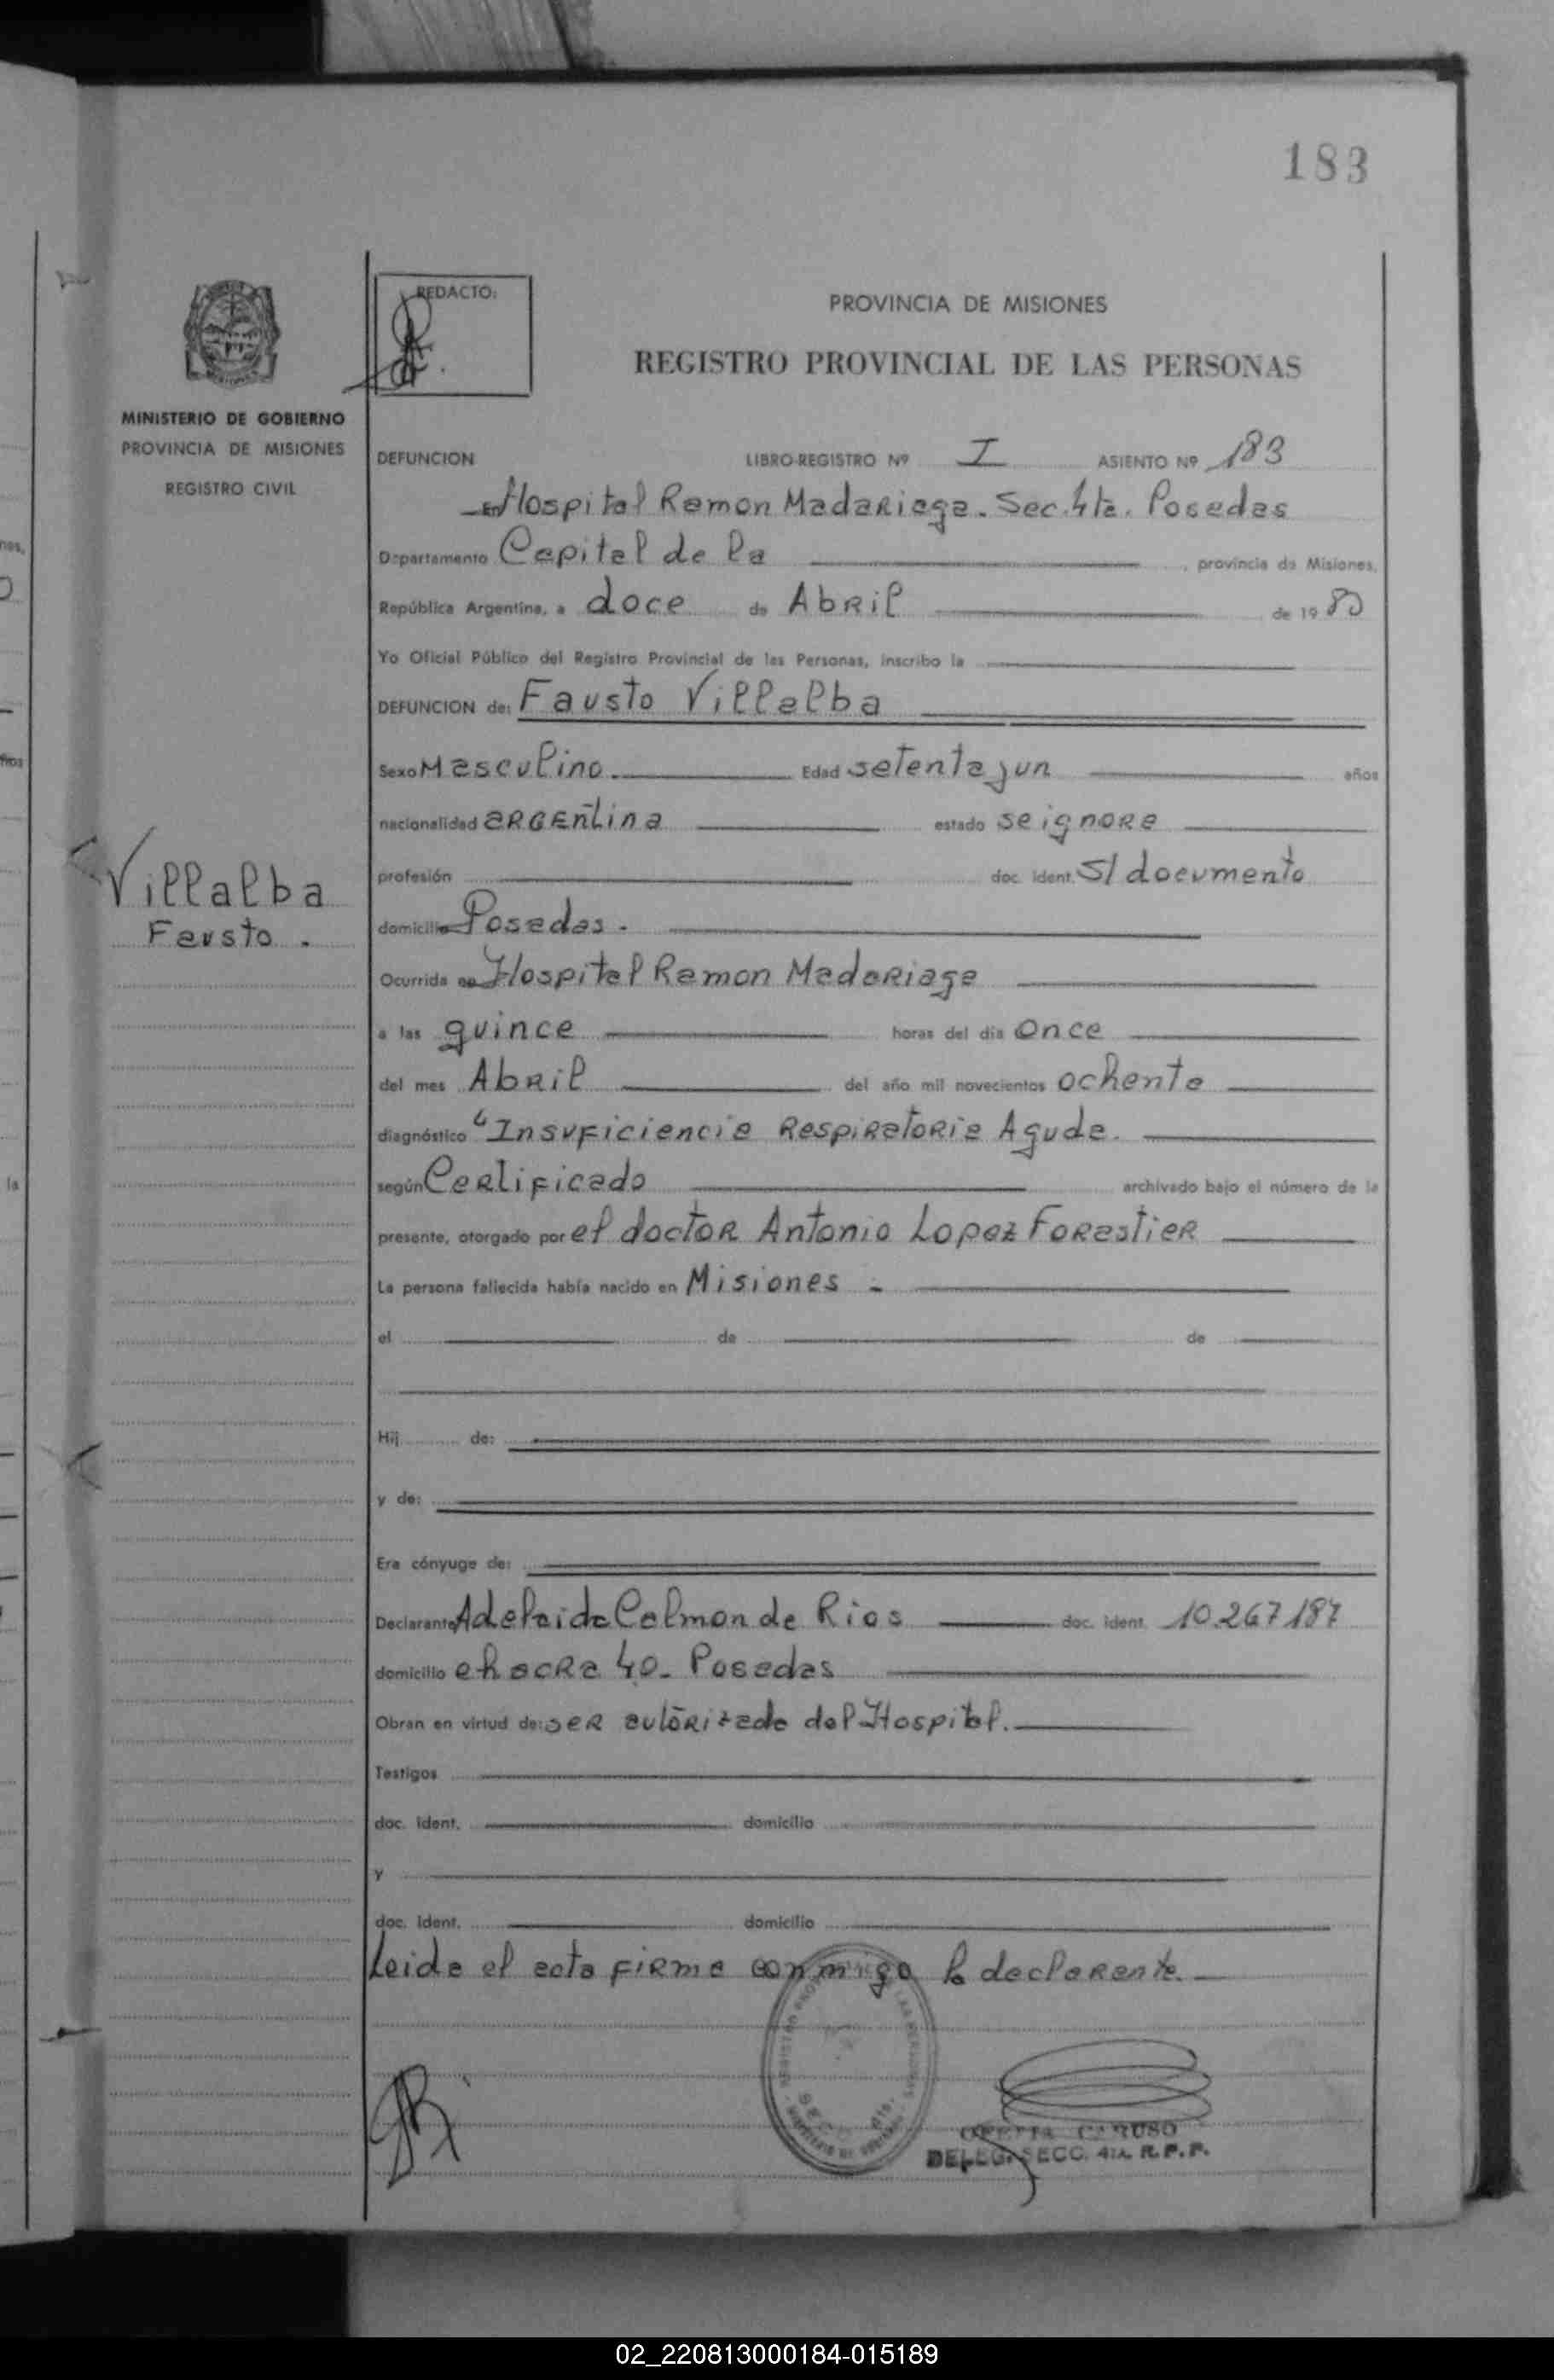 183
REDACTO:
PROVINCIA DE MISIONES
REGISTRO PROVINCIAL DE LAS PERSONAS
MINISTERIO DE GOBIERNO
PROVINCIA DE MISIONES
REGISTRO CIVIL
DEFUNCION LIBRO-REGISTRO Nº I ASIENTO Nº 183
En Hospital Ramon Madariaga. Sec. 4ta. Posadas
Departamento Capital de la provincia de Misiones,
República Argentina, a doce de Abril de 1980
Yo Oficial Público del Registro Provincial de las Personas, inscribo la
DEFUNCION de: Fausto Villalba
Sexo Masculino. Edad setenta y un años
nacionalidad argentina estado se ignora
Villalba
Fausto.
profesión doc. ident. S/ documento
domicilio Posadas.
Ocurrida en Hospital Ramon Madariaga
a las quince horas del día once
del mes Abril del año mil novecientos ochenta
diagnóstico "Insuficiencia Respiratoria Aguda.
según Certificado archivado bajo el número de la
presente, otorgado por el doctor Antonio Lopez Forestier
La persona fallecida había nacido en Misiones -
el de de
Hij de:
y de:
Era cónyuge de:
Declarante Adelaida Calmon de Rios doc. ident. 10.267187
domicilio chacra 40- Posadas
Obran en virtud de: ser autorizado del Hospital.
Testigos
doc. ident. domicilio
y
doc. ident. domicilio
Leida el acta firma conmigo la declarante.
CARUSO
DELEG. SECC. 4ta. R.P.P.
02_220813000184-015189